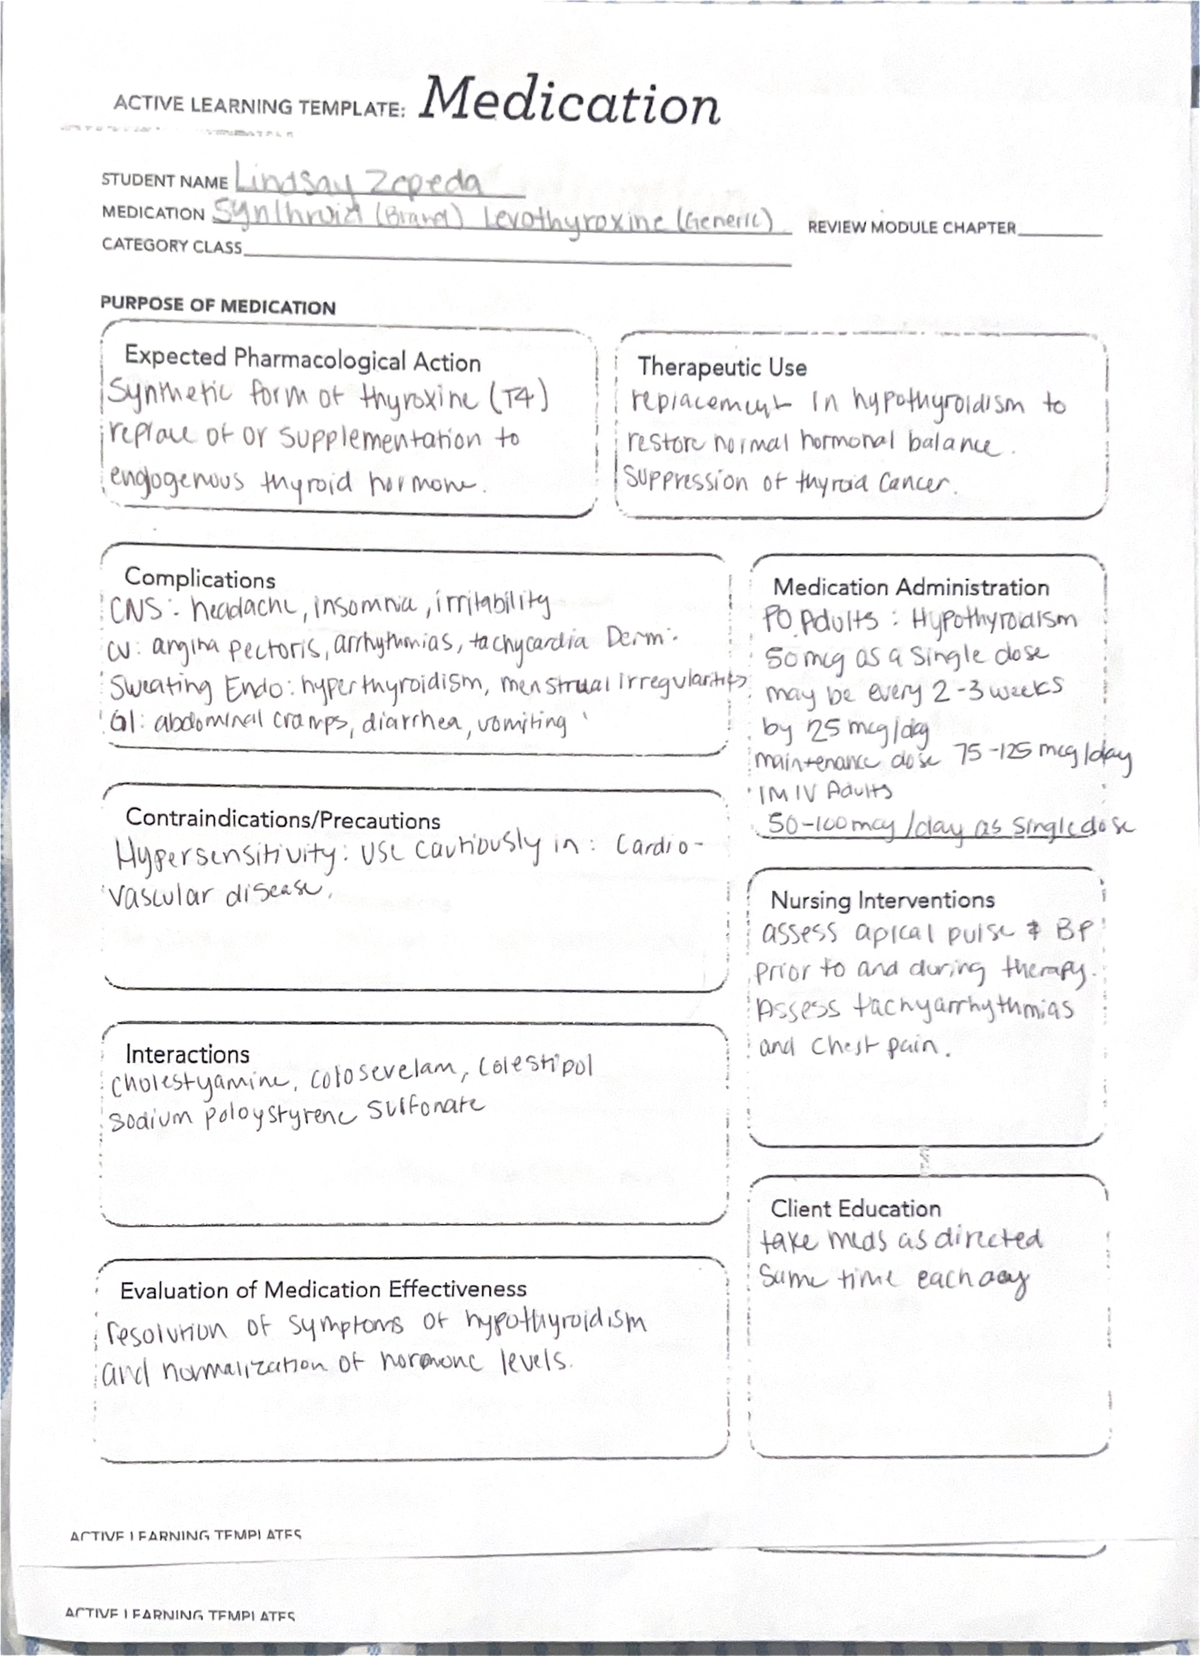 ACTIVE LEARNING TEMPLATE: Medication
STUDENT NAME Lindsay Zepeda
MEDICATION Synthroid (Brand) Levothyroxine (Generic) REVIEW MODULE CHAPTER
CATEGORY CLASS
PURPOSE OF MEDICATION
Expected Pharmacological Action
Synthetic form of thyroxine (T4)
replace of or supplementation to
engogenous thyroid hormone.
Therapeutic Use
replacement in hypothyroidism to
restore normal hormonal balance.
Suppression of thyroid cancer.
Complications
CNS: headache, insomnia, irritability
CV: angina pectoris, arrhythmias, tachycardia Derm:
Sweating Endo: hyperthyroidism, menstrual irregularities
GI: abdominal cramps, diarrhea, vomiting
Medication Administration
PO Adults: Hypothyroidism
50 mcg as a single dose
may be every 2-3 weeks
by 25 mcg/day
maintenance dose 75-125 mcg/day
IM IV Adults
50-100 mcg/day as single dose
Contraindications/Precautions
Hypersensitivity: Use cautiously in: Cardio-
vascular disease.
Nursing Interventions
assess apical pulse & BP
prior to and during therapy.
Assess tachyarrhythmias
and chest pain.
Interactions
cholestyamine, colosevelam, colestipol
Sodium poloystyrene sulfonate
Client Education
take meds as directed
Same time each day
Evaluation of Medication Effectiveness
resolution of symptoms of hypothyroidism
and normalization of hormone levels.
ACTIVE LEARNING TEMPLATES
ACTIVE LEARNING TEMPLATES